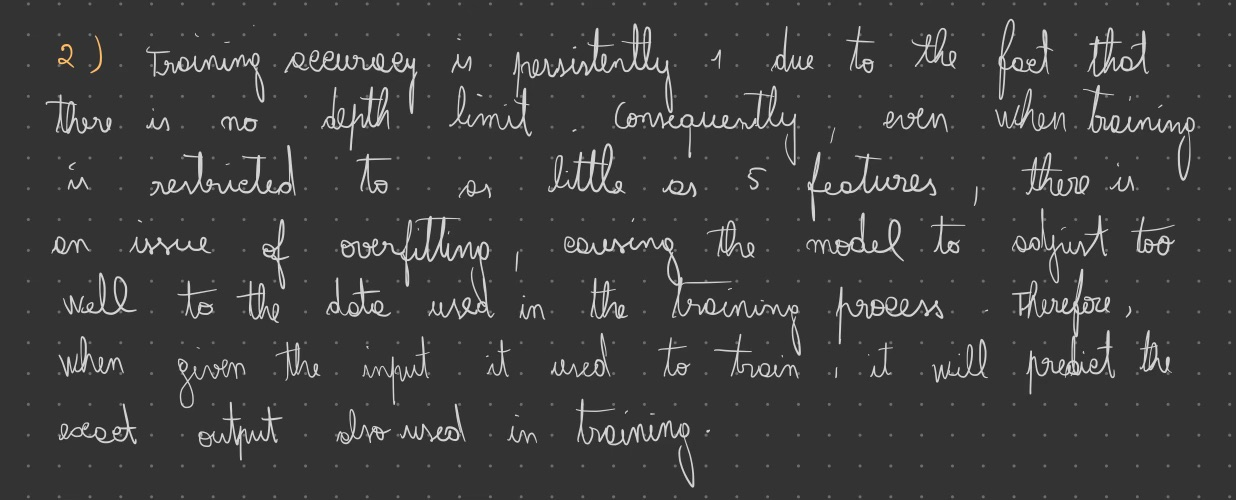 2) Training accuracy is persistently 1 due to the fact that
there is no depth limit. Consequently, even when training
is restricted to as little as 5 features, there is
an issue of overfitting, causing the model to adjust too
well to the data used in the training process. Therefore,
when given the input it used to train, it will predict the
exact output also used in training.